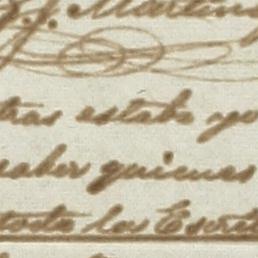 J. Martin
tras estaba yo
saber quienes
tosta los Escrit